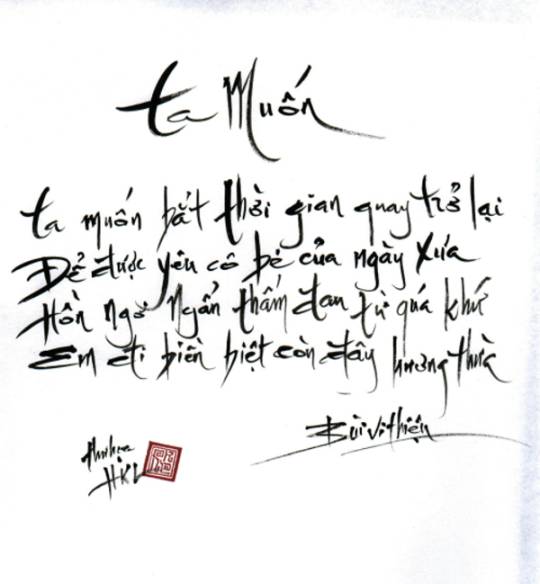 Ta Muốn
Ta muốn bắt thời gian quay trở lại
Để được yêu cô bé của ngày xưa
Hồn ngơ ngẩn thấm đau từ quá khứ
Em đi biền biệt còn đây hương thừa
Bùi Vi Thiện
HKL